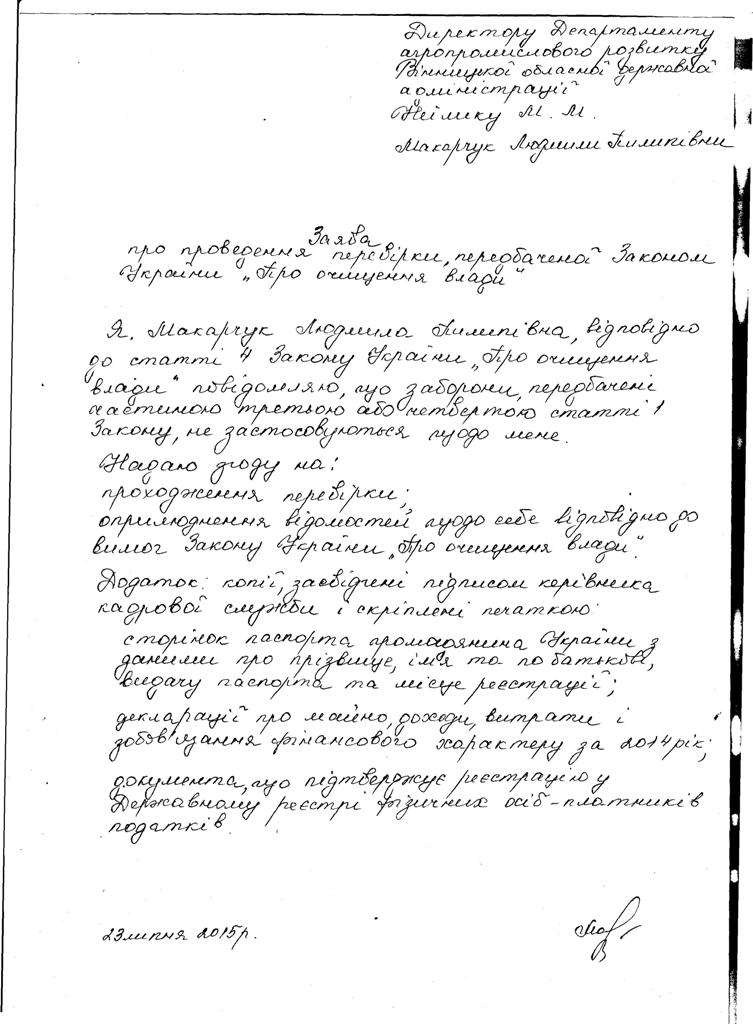 Директору Департаменту
агропромислового розвитку
Вінницької обласної державної
адміністрації
Неїлику М. М.
Макарчук Людмили Пилипівни
Заява
про проведення перевірки, передбаченої Законом
України „Про очищення влади"
Я, Макарчук Людмила Пилипівна, відповідно
до статті 4 Закону України „Про очищення
влади" повідомляю, що заборони, передбачені
частиною третьою або четвертою статті 1
Закону, не застосовуються щодо мене.
Надаю згоду на:
проходження перевірки;
оприлюднення відомостей щодо себе відповідно до
вимог Закону України „Про очищення влади".
Додаток: копії, засвідчені підписом керівника
кадрової служби і скріплені печаткою:
сторінок паспорта громадянина України з
даними про прізвище, ім'я та по батькові,
видачу паспорта та місце реєстрації;
декларації про майно, доходи, витрати і
зобов'язання фінансового характеру за 2014 рік;
документа, що підтверджує реєстрацію у
Державному реєстрі фізичних осіб-платників
податків.
23 липня 2015р.